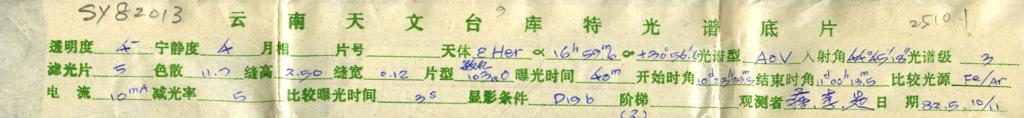 SY82013 云南天文台库特光谱底片 2510.1
透明度 4 宁静度 4 月相 片号 天体 ε Her α 16h59m δ +30°56′.6 光谱型 A0V 入射角 44°45′ 光谱级 3
滤光片 5 色散 11.7 缝高 2.50 缝宽 0.12 片型 103aO 曝光时间 40m 开始时角 结束时角 比较光源 Fe/Ar
电流 10mA 减光率 5 比较曝光时间 3s 显影条件 D19b 阶梯 (2) 观测者 李 日期 82.5.10/11